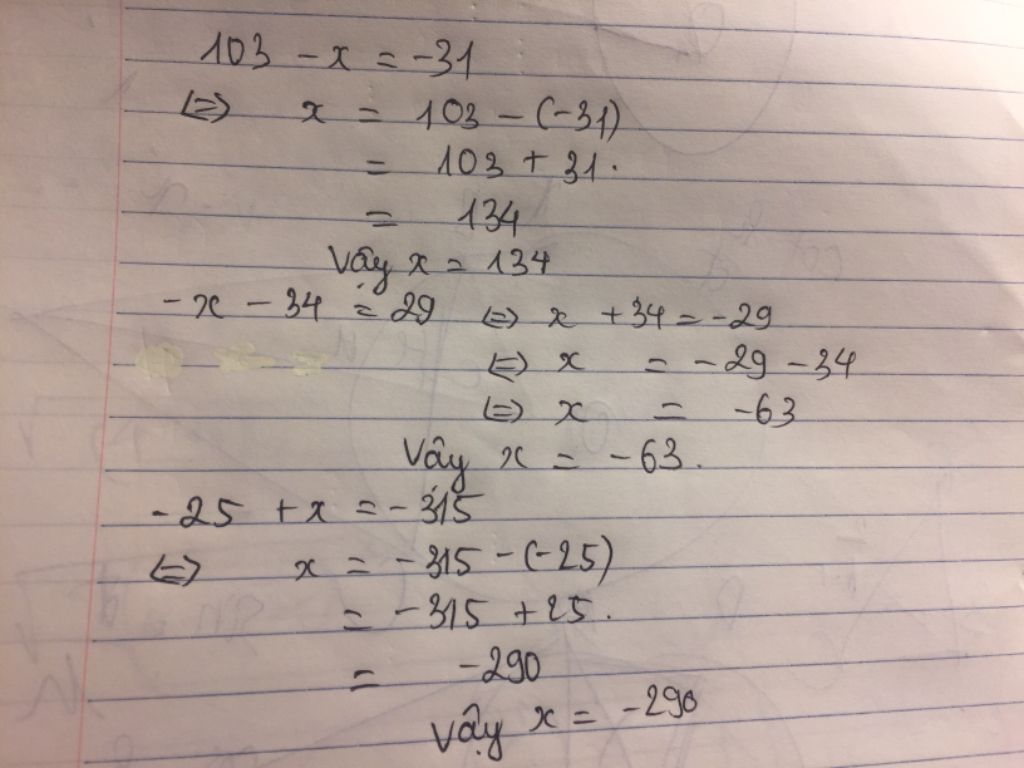 103 - x = -31
⇔ x = 103 - (-31)
= 103 + 31.
= 134
Vậy x = 134
-x - 34 = 29 ⇔ x + 34 = -29
⇔ x = -29 - 34
⇔ x = -63
Vậy x = -63.
-25 + x = -315
⇔ x = -315 - (-25)
= -315 + 25.
= -290
Vậy x = -290